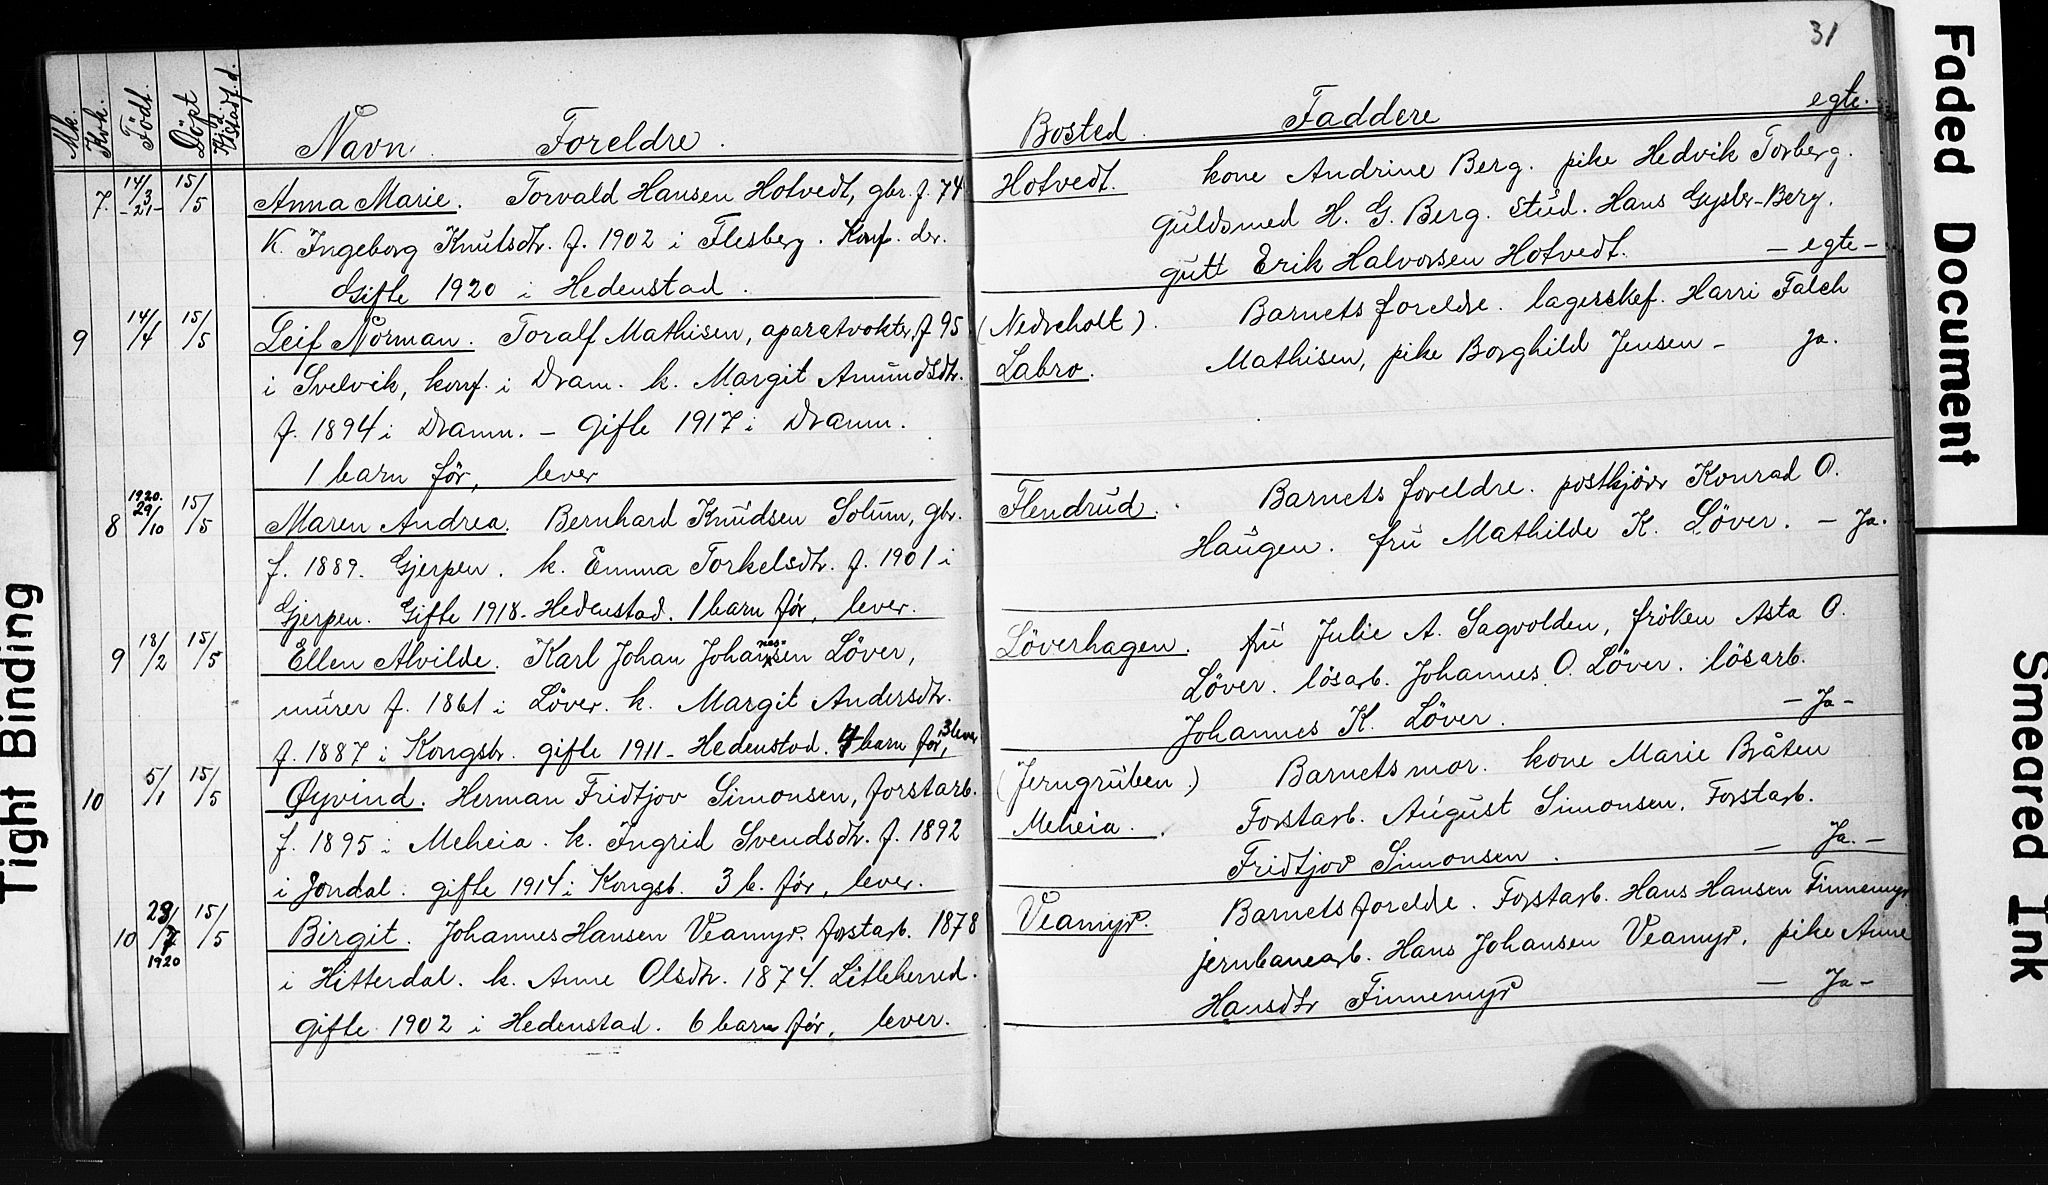 31
Mk. Kvk. Födt. Döpt Hjd. Kjstadf. d. Navn. Foreldre. Bosted. Faddere egte.
7. 14/3 -21- 15/5 Anna Marie. Torvald Hansen Hotvedt, gbr. f. 74
K. Ingeborg Knutsdtr. f. 1902 i Flesberg. Konf. der.
Gifte 1920 i Hedenstad.
Hotvedt. kone Andrine Berg. pike Hedvik Torberg.
Guldsmed H. G. Berg. stud. Hans Gysler-Berg.
gutt Erik Halvorsen Hotvedt. - egte -
9 14/4 15/5 Leif Norman. Toralf Mathisen, aparatvokter, f 95
i Svelvik, konf. i Dram. k. Margit Amundsdtr.
f. 1894 i Dramn. - Gifte 1917 i Dramn.
1 barn för, lever
(Nedreholt). Barnets foreldre. lagerchef. Harri Falch
Labro. Mathisen, pike Borghild Jensen - Ja.
8 1920. 29/10 15/5 Maren Andrea. Bernhard Knudsen Solum, gbr.
f. 1889. Gjerpen. k. Emma Torkelsdtr. f. 1901 i
Gjerpen. Gifte 1918 - Hedenstad. 1 barn før, lever.
Flendrud. Barnets foreldre. postkjörer Konrad O.
Haugen. fru Mathilde K. Löver. - Ja.
9 18/2 15/5 Ellen Alvilde. Karl Johan Johannessen Löver,
murer f. 1861 i Löver. k. Margit Andersdtr.
f. 1887 i Kongsbr. gifte 1911 - Hedenstad. 4 barn før, 3 lever
Löverhagen. fru Julie A. Sagvolden, fröken Asta O.
Löver. lösarb. Johannes O. Löver. lösarb.
Johannes K. Löver. - Ja -
10 5/1 15/5 Øyvind. Herman Fridtjov Simonsen, forstarb.
f. 1895 i Meheia. k. Ingrid Svendsdtr. f. 1892
i Jondal. gifte 1914 i Kongsb. 3 b. før, lever.
(Jerngruben) Barnets mor. kone Marie Bråten
Meheia. Forstarb. August Simonsen. Forstarb.
Fridtjov Simonsen. - Ja. -
10 29/7 1920 15/5 Birgit. Johannes Hansen Veamyr. forstarb. 1878
i Hitterdal. k. Anne Olsdtr. 1874. Litleherred.
gifte 1902 i Hedenstad. 6 barn før, lever.
Veamyr. Barnets foreldre. Forstarb. Hans Hansen Finnemyr
jernbanearb. Hans Johansen Veamyr. pike Anne
Hansdtr Finnemyr - Ja -
Tight Binding
Faded Document
Smeared Ink